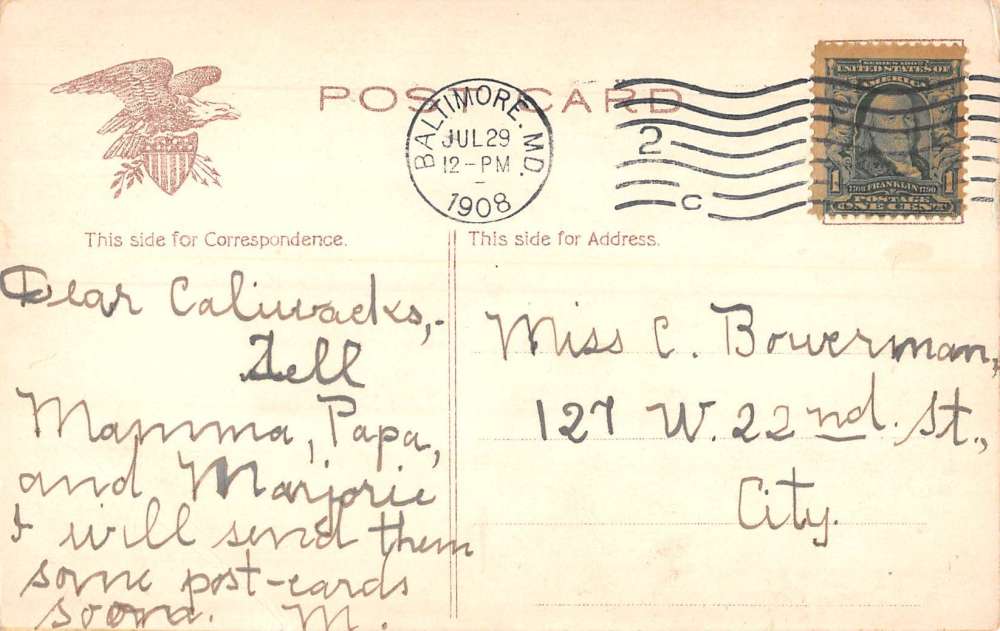 POST CARD
BALTIMORE. MD.
JUL 29
12-PM
1908
2
C
SERIES 1902
UNITED STATES OF
AMERICA
1
1
1706 FRANKLIN 1790
POSTAGE
ONE CENT
This side for Correspondence.
This side for Address.
Dear Caliwacks,-
Tell
Mamma, Papa,
and Marjorie
I will send them
some post-cards
soon. M.
Miss C. Bowerman,
127 W. 22nd. St.,
City.